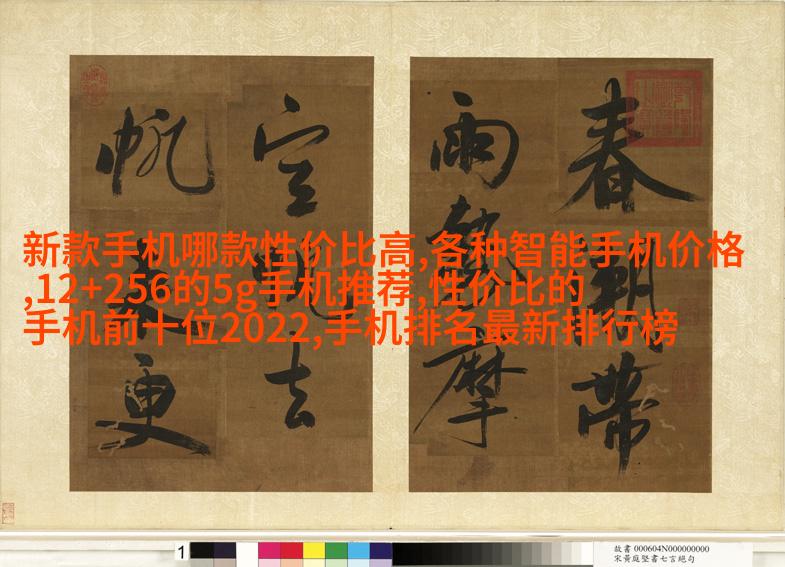 春潮帶
雨 摩
空 去
帆 更
新款手机哪款性价比高,各种智能手机价格
,12+256的5g手机推荐,性价比的
手机前十位2022,手机排名最新排行榜
1
故書 000604N000000000
宋黃庭堅書七言絕句